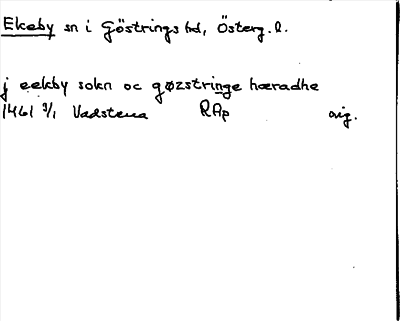 Ekeby sn i Göstrings hd, Österg. l.
j eekby sokn oc gøzstringe hæradhe
1461 3/1 Vadstena RAp orig.